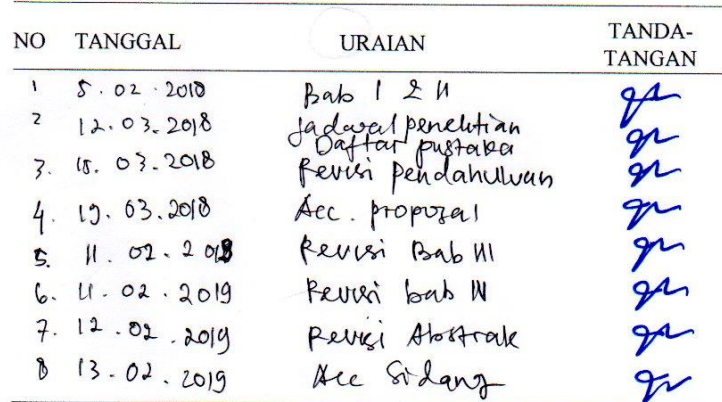 NO TANGGAL URAIAN TANDA-
TANGAN
1 5.02.2018 Bab I & II
2 12.03.2018 Jadwal penelitian
Daftar pustaka
3. 03.2018 Revisi Pendahuluan
4. 19.03.2018 Acc. proposal
5. 11.02.2018 Revisi Bab III
6. 11.02.2019 Revisi bab IV
7. 12.02.2019 Revisi Abstrak
8 13.02.2019 Acc Sidang